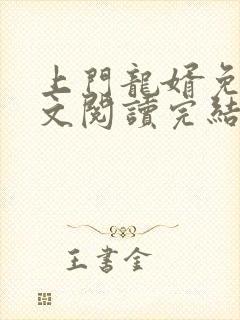 上門龍婿免
文閱讀完結
王書金